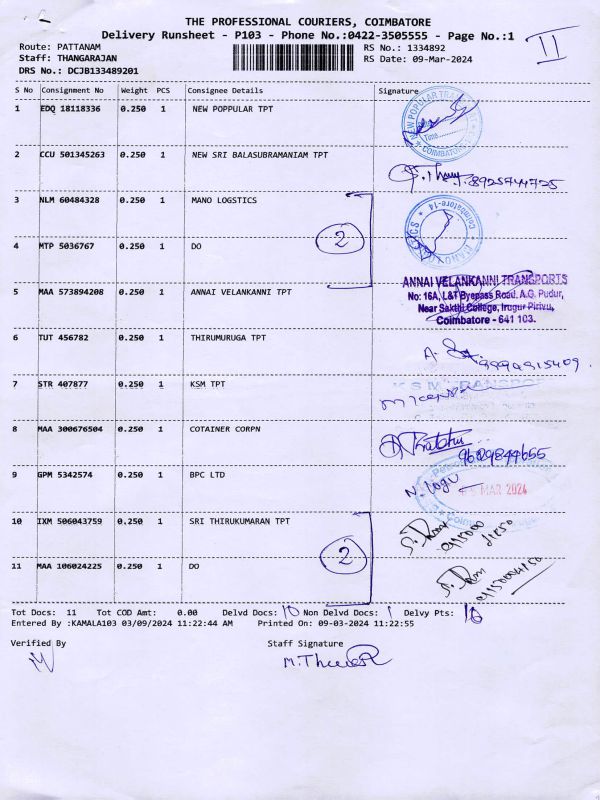 THE PROFESSIONAL COURIERS, COIMBATORE
Delivery Runsheet - P103 - Phone No.:0422-3505555 - Page No.:1
II
Route: PATTANAM RS No.: 1334892
Staff: THANGARAJAN RS Date: 09-Mar-2024
DRS No.: DCJB133489201
S No Consignment No Weight PCS Consignee Details Signature
1 EDQ 18118336 0.250 1 NEW POPPULAR TPT
NEW POPULAR TRA
COIMBATORE
2 CCU 501345263 0.250 1 NEW SRI BALASUBRAMANIAM TPT 8925744725
3 NLM 60484328 0.250 1 MANO LOGSTICS
Coimbatore-14
2
4 MTP 5036767 0.250 1 DO
5 MAA 573894208 0.250 1 ANNAI VELANKANNI TPT
ANNAI VELANKANNI TRANSPORTS
No: 16A, L&T Byepass Road, A.G. Pudur,
Near Sakthi College, Irugur Pirivu,
Coimbatore - 641 103.
6 TUT 456782 0.250 1 THIRUMURUGA TPT
7 STR 407877 0.250 1 KSM TPT
KSM TRANSPOR
8 MAA 300676504 0.250 1 COTAINER CORPN
9629844655
9 GPM 5342574 0.250 1 BPC LTD
N. Logu
MAR 2024
10 IXM 506043759 0.250 1 SRI THIRUKUMARAN TPT
2
11 MAA 106024225 0.250 1 DO
Tot Docs: 11 Tot COD Amt: 0.00 Delvd Docs: 10 Non Delvd Docs: 1 Delvy Pts:
Entered By :KAMALA103 03/09/2024 11:22:44 AM Printed On: 09-03-2024 11:22:55
Verified By Staff Signature